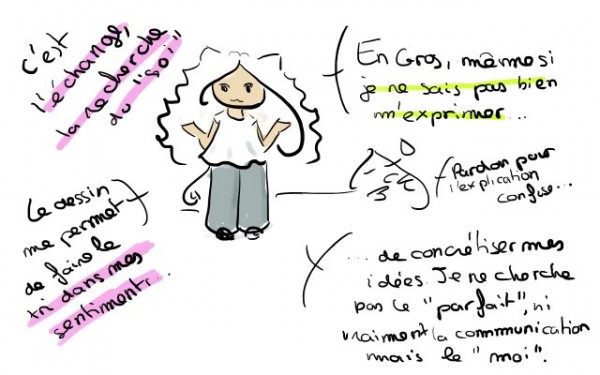 c'est
l'échange,
la recherche
du "soi"
En Gros, même si
je ne sais pas bien
m'exprimer...
Pardon pour
l'explication
confuse...
Le dessin
me permet
de faire le
tri dans mes
sentiments...
... de concrétiser mes
idées. Je ne cherche
pas le "parfait", ni
vraiment la communication
mais le "moi".